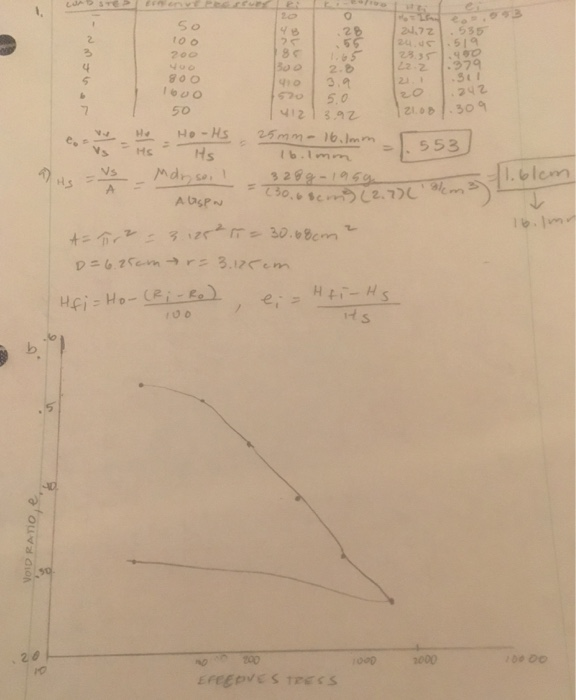 1. LOAD STEP EFFECTIVE PRESSURE Ri
20 0 e₀ = .553
1 50 48 .28 24.72 .535
2 100 75 .55 24.45 .519
3 200 185 1.65 23.35 .450
4 400 300 2.8 22.2 .379
5 800 410 3.9 21.1 .311
6 1600 520 5.0 20 .242
7 50 412 3.92 21.08 .309
e₀ = Vv/Vs = Hv/Hs = H₀ - Hs / Hs = 25mm - 16.1mm / 16.1mm = .553
a) Hs = Vs/A = Mdry,soil / AGsρw = 328g - 195g / (30.68cm²)(2.7)(1g/cm³) = 1.61cm
↓
16.1mm
A = πr² = 3.125²π = 30.68cm²
D = 6.25cm → r = 3.125cm
Hfi = H₀ - (Ri - R₀)/100 , ei = Hfi - Hs / Hs
b.
.6
.5
.40
.30
.20
VOID RATIO, e
10 200 1000 2000 10000
EFFECTIVE STRESS